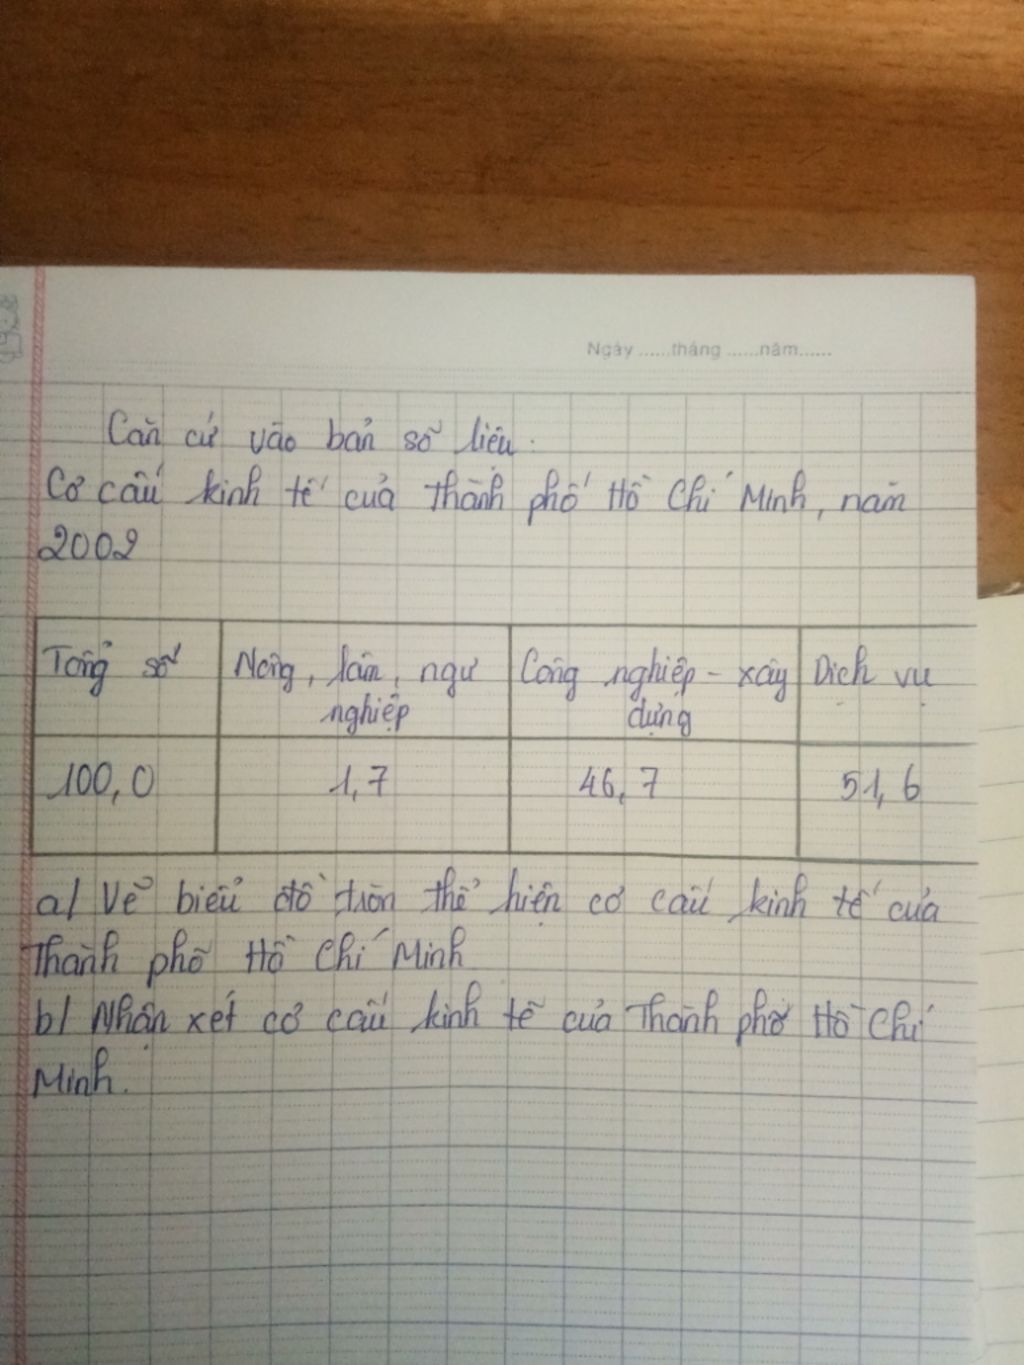 Ngày ......tháng ......năm......
Căn cứ vào bản số liệu:
Cơ cấu kinh tế của Thành phố Hồ Chí Minh, năm
2002
Tổng số Nông, lâm, ngư Công nghiệp - xây Dịch vụ
nghiệp dựng
100,0 1,7 46,7 51,6
a/ Vẽ biểu đồ tròn thể hiện cơ cấu kinh tế của
Thành phố Hồ Chí Minh
b/ Nhận xét cơ cấu kinh tế của Thành phố Hồ Chí
Minh.